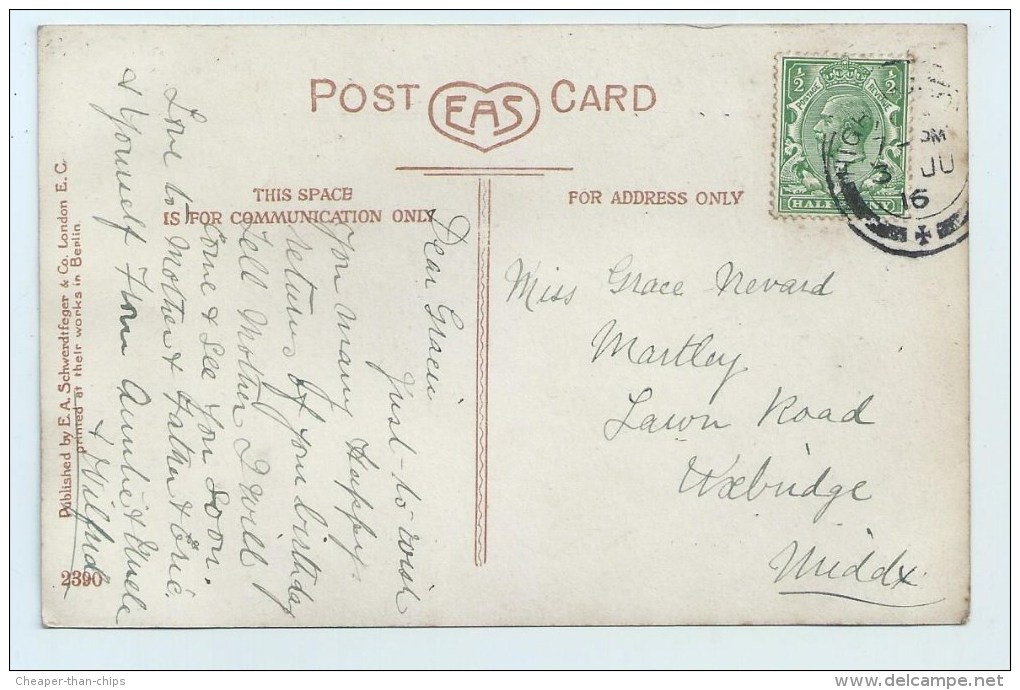 POST EAS CARD
THIS SPACE
IS FOR COMMUNICATION ONLY
FOR ADDRESS ONLY
½ ½
POSTAGE REVENUE
HALF PENNY
PM
3 JU
16
Dear Gracie
Just to wish
You Many Happy
returns of your birthday
Tell Mother I will
Come & See You Soon.
Love to Mother & Father & Eric,
& Yourself From Auntie & Uncle
& Wilfred
Miss Grace Nevard
Martley
Lawn Road
Uxbridge
Middx
Published by E. A. Schwerdtfeger & Co. London E. C.
printed at their works in Berlin
2390
Cheaper-than-chips
www.delcampe.net